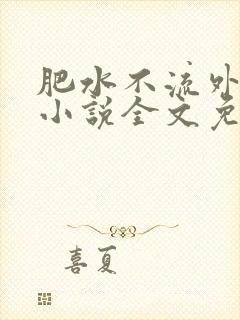 肥水不流外
小说全文免
喜夏